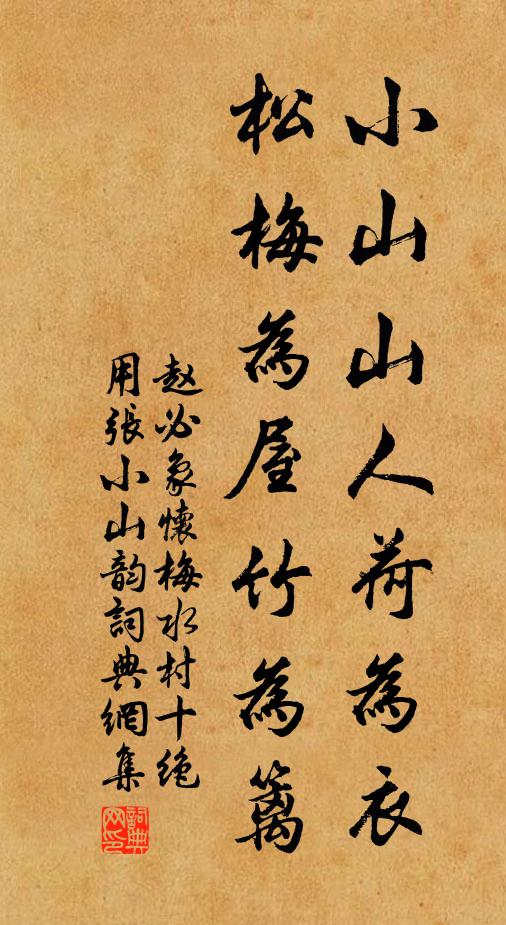 小山山人荷為衣
松梅為屋竹為篱
赵必象懷梅水村十绝
用張小山韵詞典網集
詞典网印